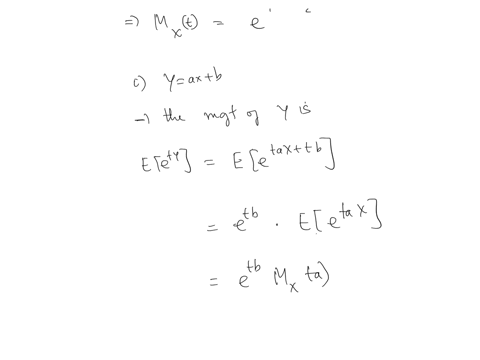 =) M_X(t) = e
c) Y=ax+b
→ the mgt of Y is
E[e^{tY}] = E[e^{tax+tb}]
= e^{tb} · E[e^{tax}]
= e^{tb} M_X ta)